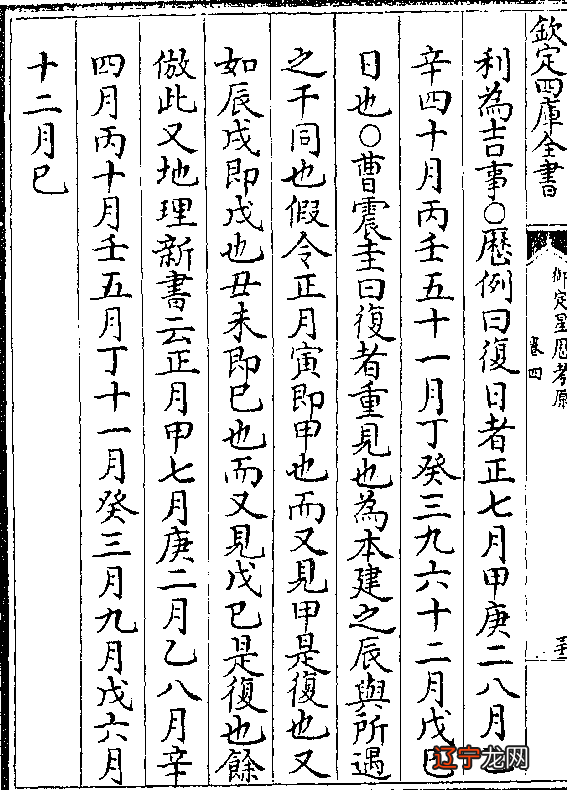 欽定四庫全書
御定星歷考原
卷四
利為吉事○歷例曰復日者正七月甲庚二八月
辛四十月丙壬五十一月丁癸三九六十二月戊巳
日也○曹震圭曰復者重見也為本建之辰與所遇
之干同也假令正月寅即甲也而又見甲是復也又
如辰戌即戊也丑未即巳也而又見戊巳是復也餘
倣此又地理新書云正月甲七月庚二月乙八月辛
四月丙十月壬五月丁十一月癸三月九月戊六月
十二月巳
辽宁龙网